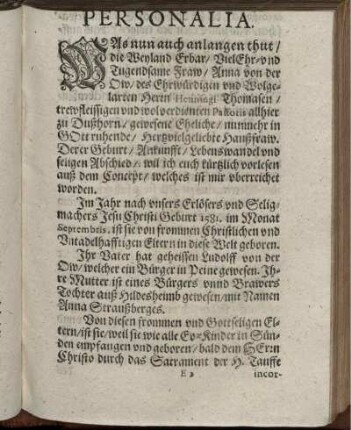 PERSONALIA.
WAs nun auch anlangen thut/
die Weyland Erbar/ Viel Ehr-vnd
Tugendsame Fraw/ Anna von der
Ow/ des Ehrwürdigen vnd Wolge-
larten Herrn Henningi Thomasen/
trewfleissigen vnd wol verdienten Pastoris allhier
zu Dußhorn/ gewesene Eheliche/ nunmehr in
GOtt ruhende/ Hertzvielgeliebte Haußfraw.
Derer Geburt/ Ankunfft/ Lebenswandel vnd
seligen Abschied/ wil ich euch kürtzlich vorlesen
auß dem Concept/ welches ist mir vberreichet
worden.
Im Jahr nach vnsers Erlösers vnd Selig-
machers Jesu Christi Geburt 1581. im Monat
Septembris, ist sie von frommen Christlichen vnd
Vntadelhafftigen Eltern in diese Welt geboren.
Ihr Vater hat geheissen Ludolff von der
Ow/ welcher ein Bürger in Peine gewesen. Ih-
re Mutter ist eines Bürgers vnnd Brawers
Tochter auß Hildesheimb gewesen/ mit Namen
Anna Straußberges.
Von diesen frommen vnd Gottseligen El-
tern/ ist sie/ weil sie wie alle Ev-Kinder in Sün-
den empfangen vnd geboren/ bald dem HErrn
Christo durch das Sacrament der H. Tauffe
E 2 incor-